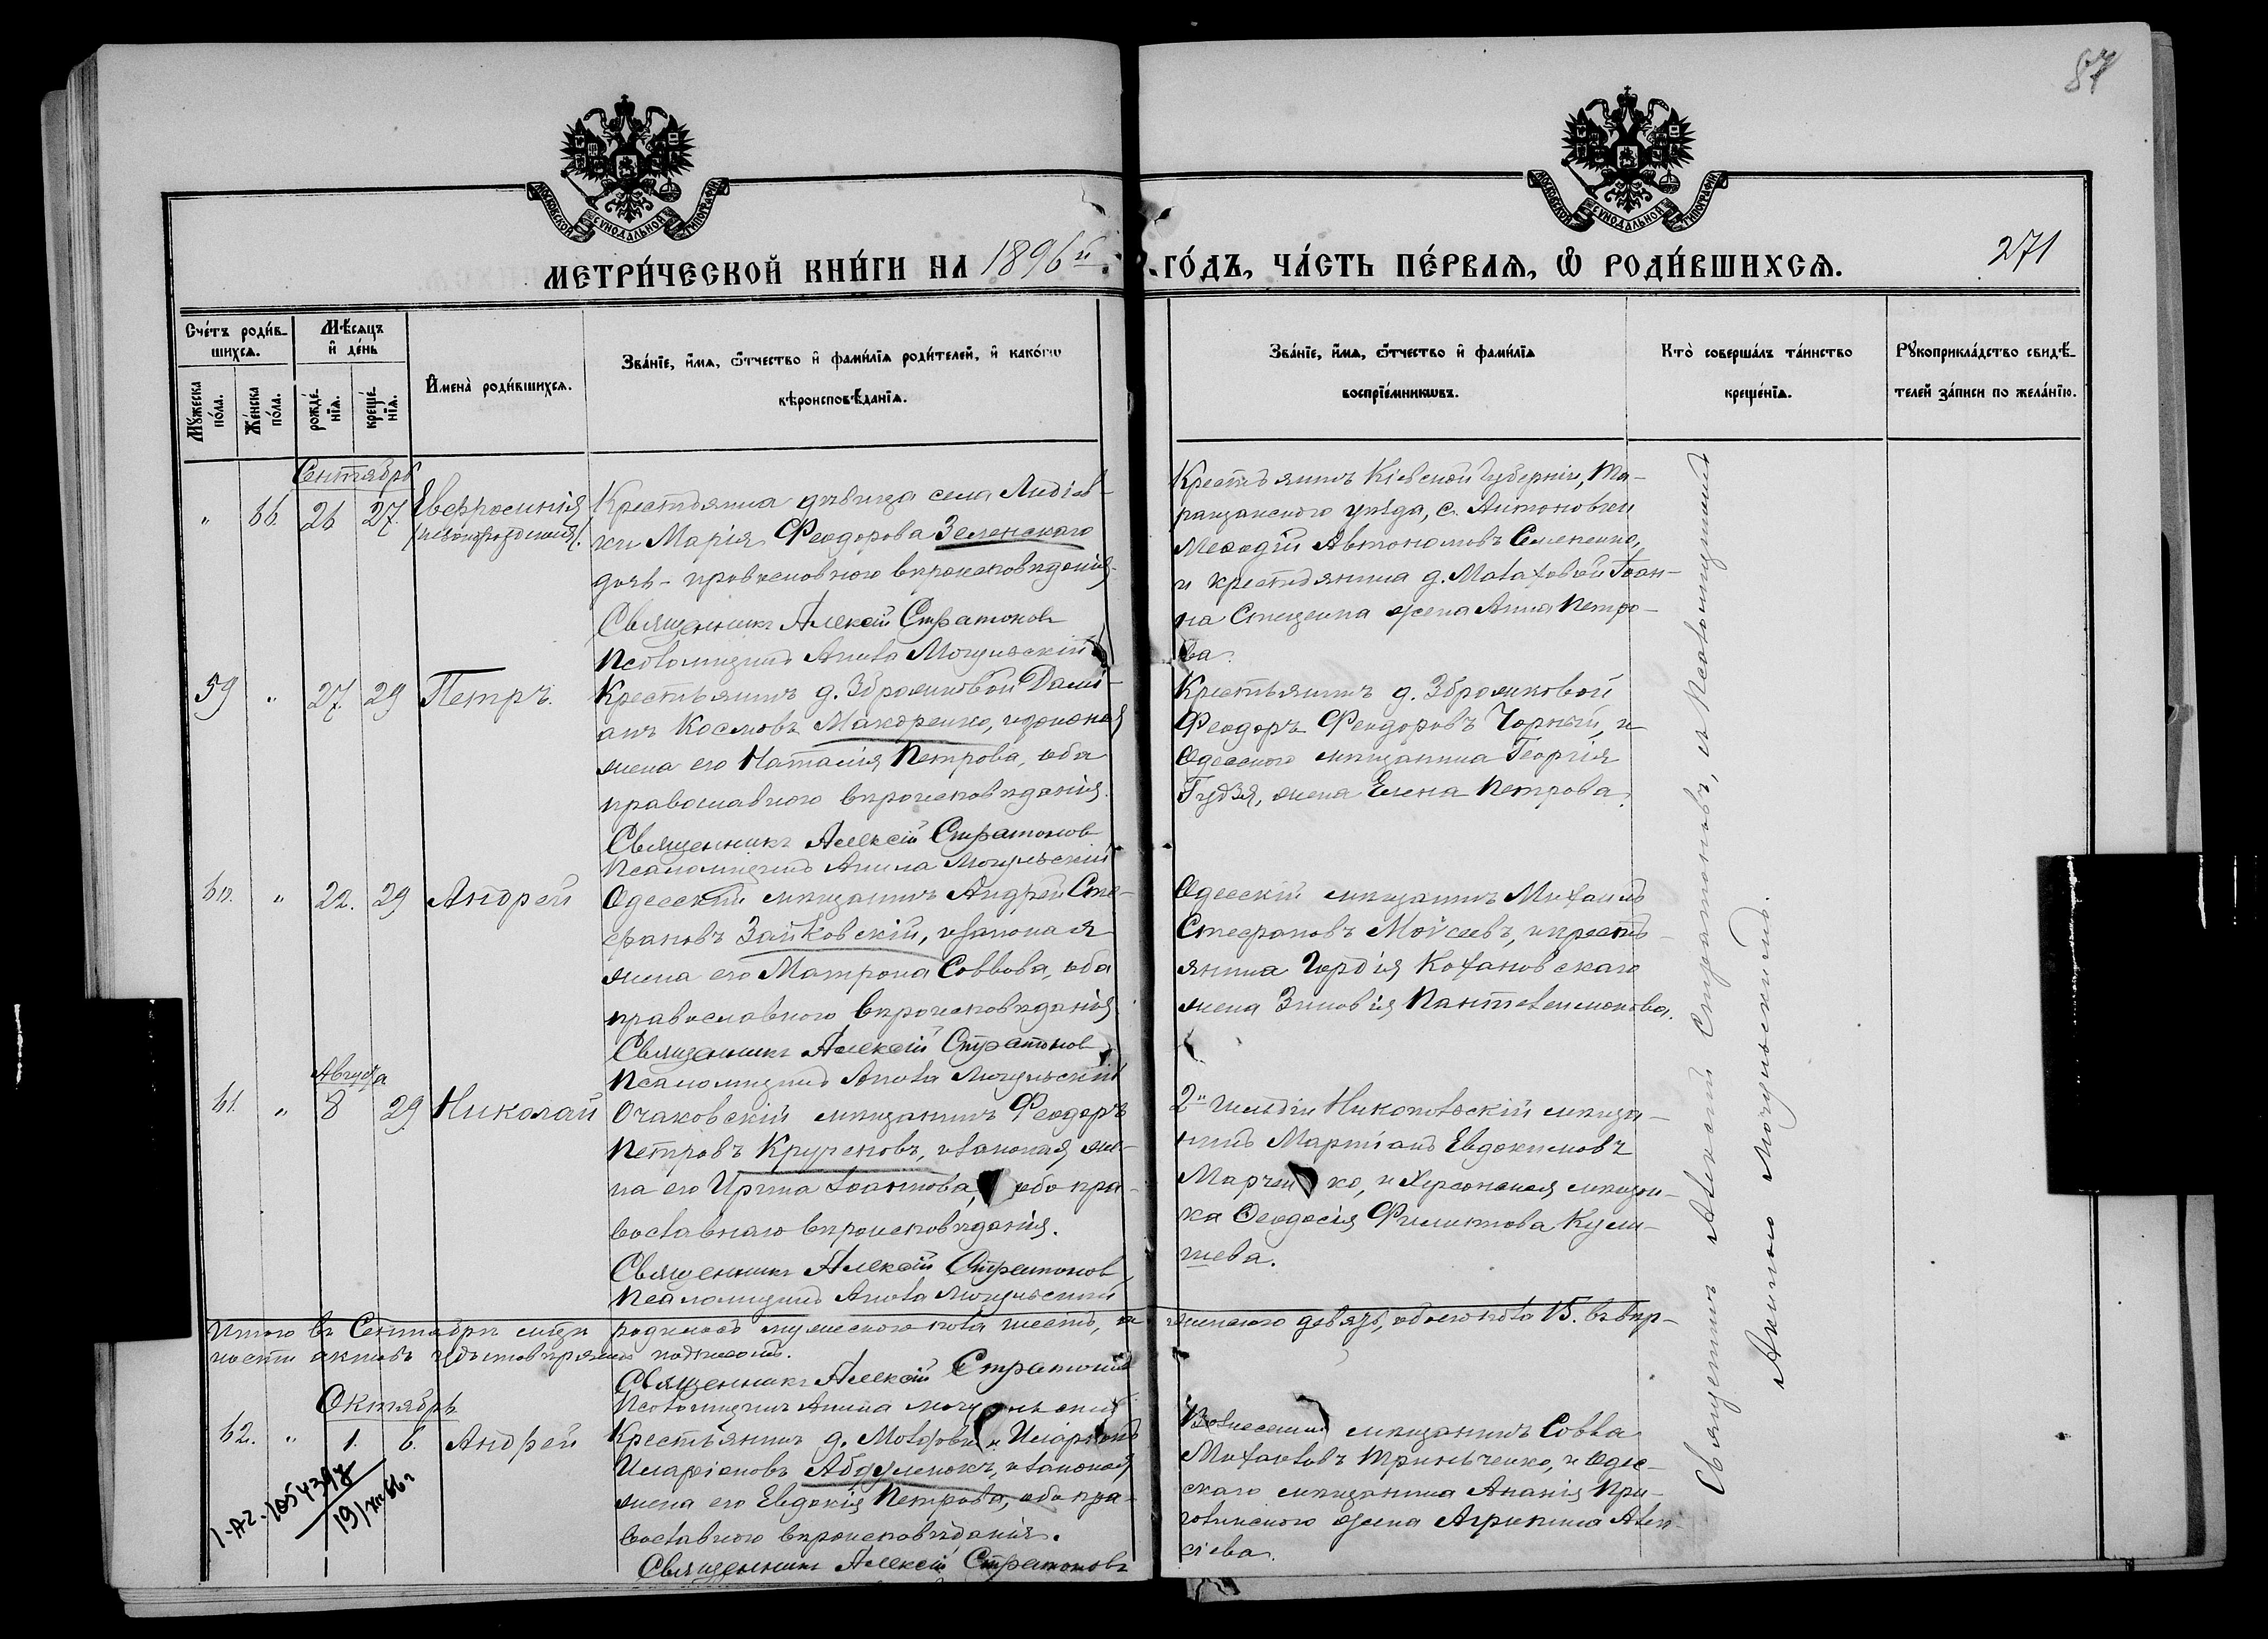 87
МОСКОВСКОЙ СѴНОДАЛЬНОЙ ТИПОГРАФІИ
МОСКОВСКОЙ СѴНОДАЛЬНОЙ ТИПОГРАФІИ
МЕТРИ́ЧЕСКОЙ КНИ́ГИ НА 1896й ГО́ДЪ, ЧА́СТЬ ПЕ́РВАѦ, Ѽ РОДИ́ВШИХСѦ.
271
Сче́тъ роди́в-
шихсѧ.
Мꙋжеска
по́ла.
Же́нска
по́ла.
Мѣ́сѧцъ
и҆ де́нь
рожде́-
нїѧ.
креще́-
нїѧ.
И҆мена̀ роди́вшихсѧ.
Зва́нїе, и҆́мѧ, ѻ҆́тчество и҆ фами́лїѧ роди́телей, и҆ како́гѡ
вѣроисповѣ́данїѧ.
Зва́нїе, и҆́мѧ, ѻ҆́тчество и҆ фами́лїѧ
воспрїе́мникѡвъ.
Кто̀ соверша́лъ та́инство
креще́нїѧ.
Рꙋкоприкла́дство свидѣ́-
телей за́писи по жела́нїю.
Сентябрь
" 66. 26 27. Евфросинія
/незаконорожденная/.
Крестьянка дѣвица села Лидіев-
ки Марія Феодорова Зеленскаго
дочь - православнаго вѣроисповѣданія
Священникъ Алексій Стратоновъ
Псаломщикъ Акила Могульскій
Крестьянинъ Кіевской Губерніи, Та-
ращанскаго уѣзда, с. Антоновки
Меѳодій Автономовъ Семененко,
и крестьянина д. Малаховой Іоан-
на Стеценка жена Анна Петро-
ва.
59 " 27. 29 Петръ.
Крестьянинъ д. Зброжковой Даміт-
анъ Космовъ Макаренко, и законная
жена его Наталія Петрова, оба
православнаго вѣроисповѣданія.
Священникъ Алексій Стратоновъ
Псаломщикъ Акила Могульскій
Крестьянинъ д. Зброжковой
Феодоръ Феодоровъ Чорный, и
Одесскаго мѣщанина Георгія
Гудзя, жена Елена Петрова.
60. " 22. 29 Андрей
Одесскій мѣщанинъ Андрей Сте-
фановъ Зайковскій, и законная
жена его Матрона Саввова, оба
православнаго вѣроисповѣданія
Священникъ Алексій Стратоновъ
Псаломщикъ Акила Могульскій
Одесскій мѣщанинъ Михаилъ
Стефановъ Моисеевъ, и кресть-
янина Гордія Кохановскаго
жена Зиновія Пантелеимонова.
Августа
61. " 8 29 Николай
Очаковскій мѣщанинъ Феодоръ
Петровъ Круреновъ, и законная же-
на его Ирина Іоаннова, оба пра-
вославнаго вѣроисповѣданія.
Священникъ Алексій Стратоновъ
Псаломщикъ Акила Могульскій
2й гильдіи Никопольскій мѣща-
нинъ Мартіанъ Евдокимовъ
Марченко, и Херсонская мѣщан-
ка Ѳеодосія Филиппова Кули-
шева.
Итого въ Сентябрѣ мѣсяцѣ родилось мужескаго пола шесть, и женскаго девять, обоего пола 15. въ вѣр-
ности актовъ удостовѣряемъ подписомъ.
Священникъ Алексій Стратоновъ
Псаломщикъ Акила Могульскій
Октябрь
62. " 1. 6. Андрей
Крестьянинъ д. Малаховки Иларіонъ
Иларіоновъ Абдулменокъ, и законная
жена его Евдокія Петрова, оба пра-
вославнаго вѣроисповѣданія.
Священникъ Алексій Стратоновъ
Вознесенскій мѣщанинъ Савва
Михаиловъ Тринѣченко, и Одес-
скаго мѣщанина Ананія При-
лѣпскаго жена Агрипина Алек-
сіева.
Священникъ Алексій Стратоновъ, и Псаломщикъ
Акила Могульскій.